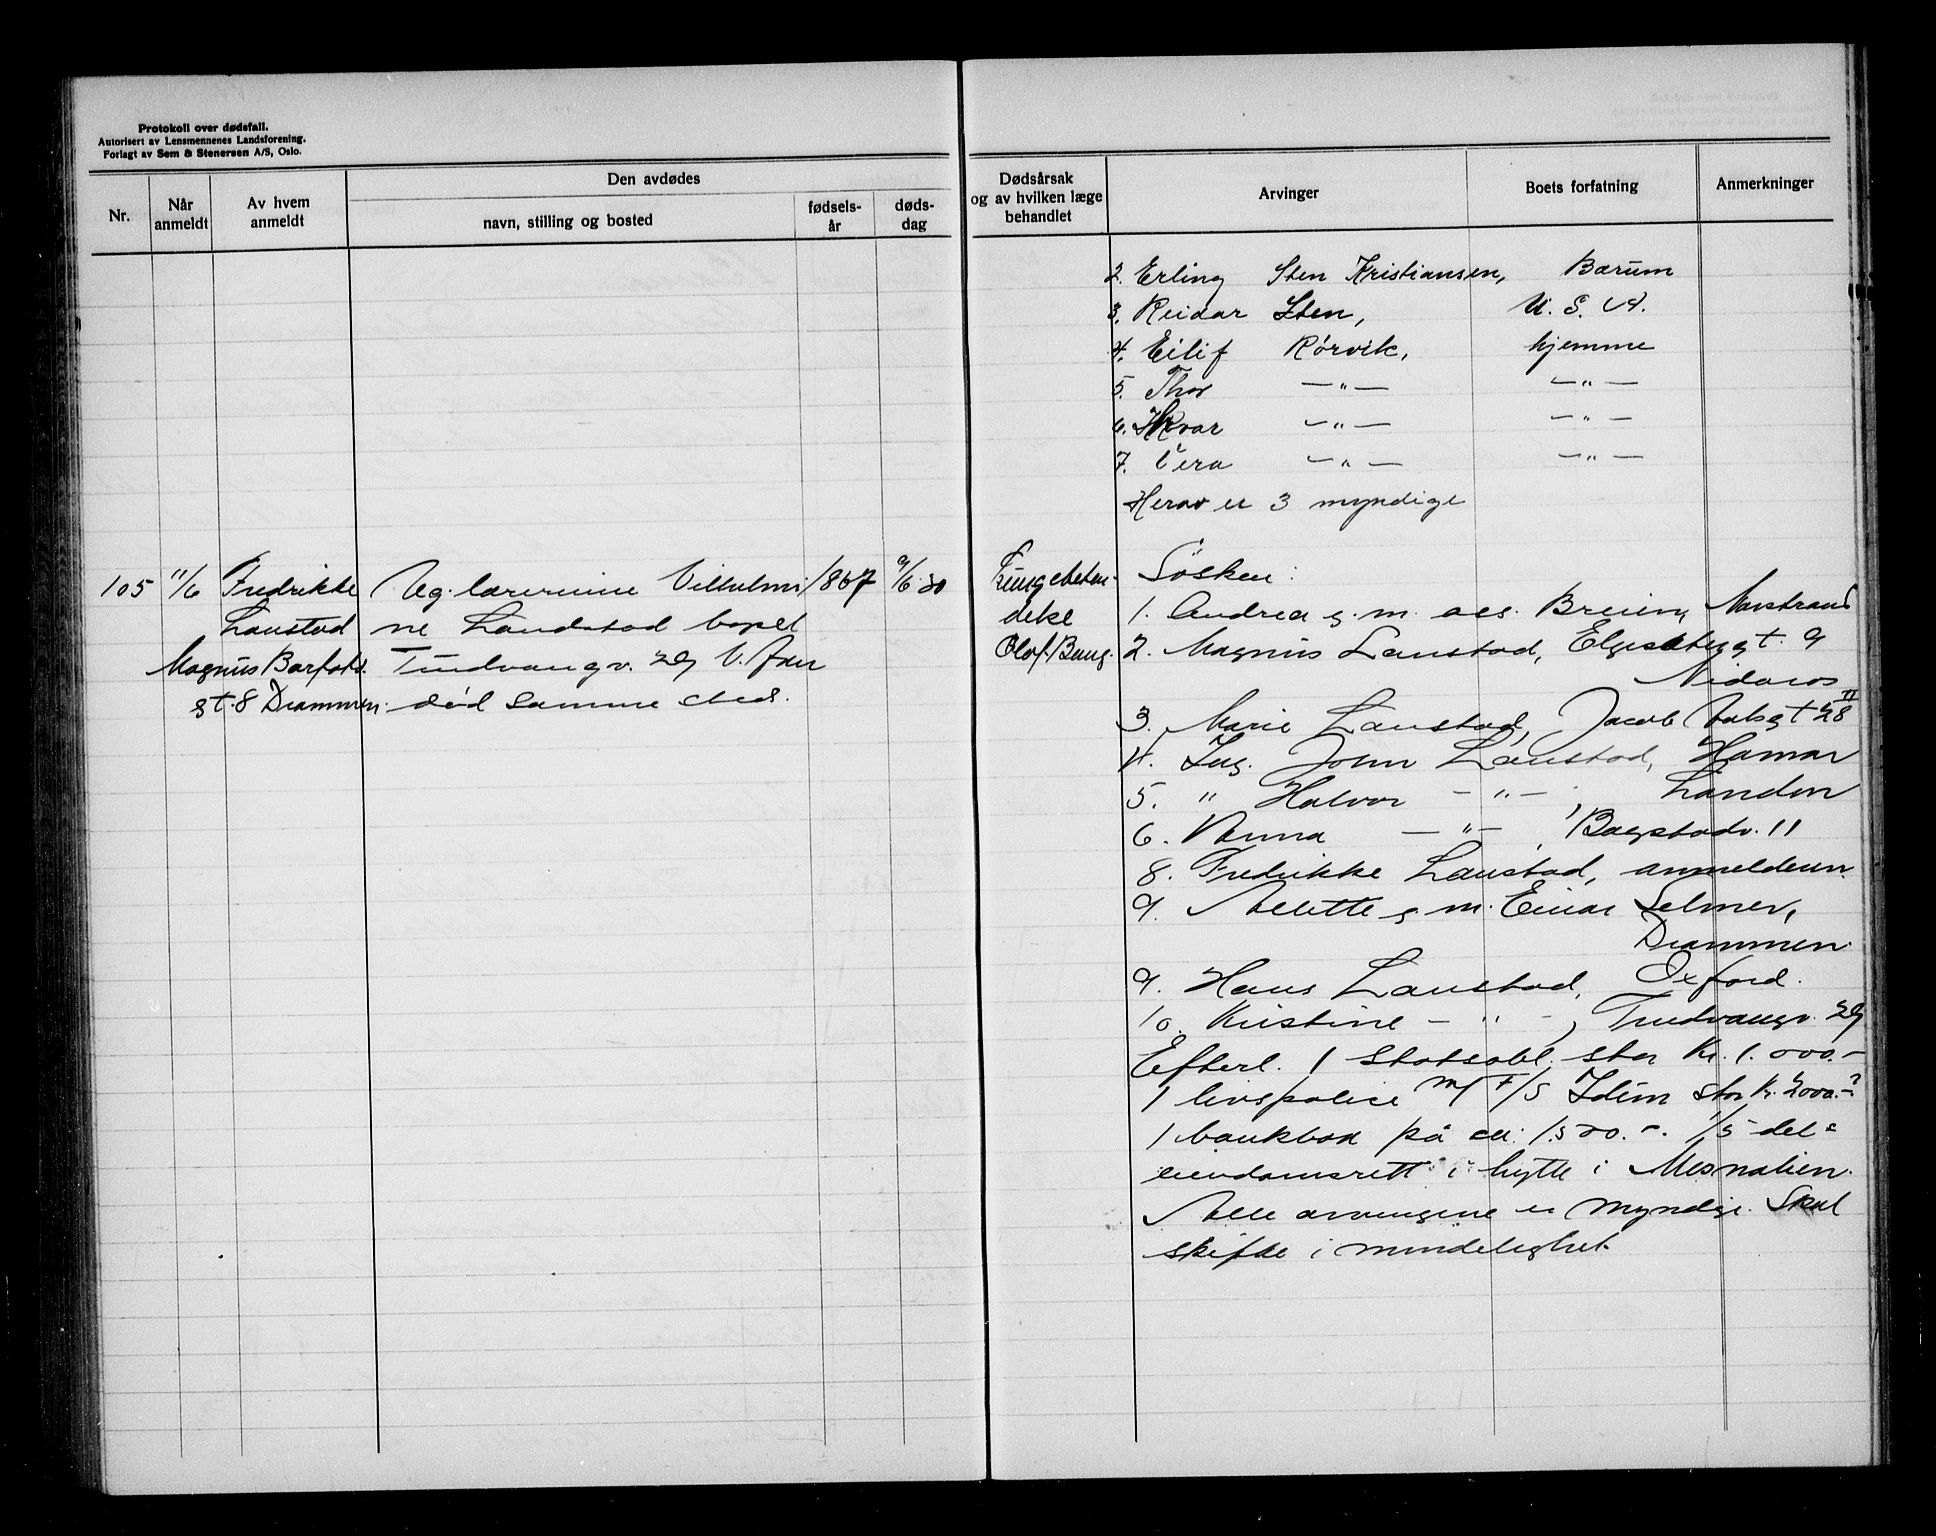 Protokoll over dødsfall.
Autorisert av Lensmennenes Landsforening.
Forlagt av Sem & Stenersen A/S, Oslo.
Nr.
Når anmeldt
Av hvem anmeldt
Den avdødes
navn, stilling og bosted
fødsels-år
døds-dag
Dødsårsak og av hvilken læge behandlet
Arvinger
Boets forfatning
Anmerkninger
2. Erling Sten Kristiansen, Bærum
3. Reidar Sten, U. S. A.
4. Eilif Rörvik, hjemme
5. Thor —"— —"—
6. Ivar —"— —"—
7. Vera —"— —"—
Herav er 3 myndige
105 11/6 Fredrikke Ug. lærerinne Vilhelmi 1867 9/6 30
Lanstad ne Landstad bopel
Magnus Barfots Tindvangv. 29 V. Aker
gt. 8 Drammen. död samme sted.
Lungebeten-
delse
Olof. Bang.
Søsken:
1. Andrea g. m. Breien,
2. Magnus Lanstad, Elgesetergt. 9
Nidaros
3. Marie Lanstad, Jacob Aalsgt 28 II
4. Ing. John Lanstad, Hamar
5. " Halvor —"— London
6. Anna —"—, Bogstadv. 11
8. Fredrikke Lanstad, anmelderen.
9. Alette g. m. Einar Selmer,
Drammen.
9. Hans Lanstad, Oxford.
10. Kristine — " —, Tindvangv. 29
Efterl. 1 statsobl. stor Kr. 1.000.-
1 livspolice m/ F/S Idun stor Kr. 2000.-?
1 bankbok på ca. 1.500.-. 1/5 del
eiendomsrett i hytte i Mesnalien.
Alle arvingene er myndige. Skal
skifte i mindelighet.